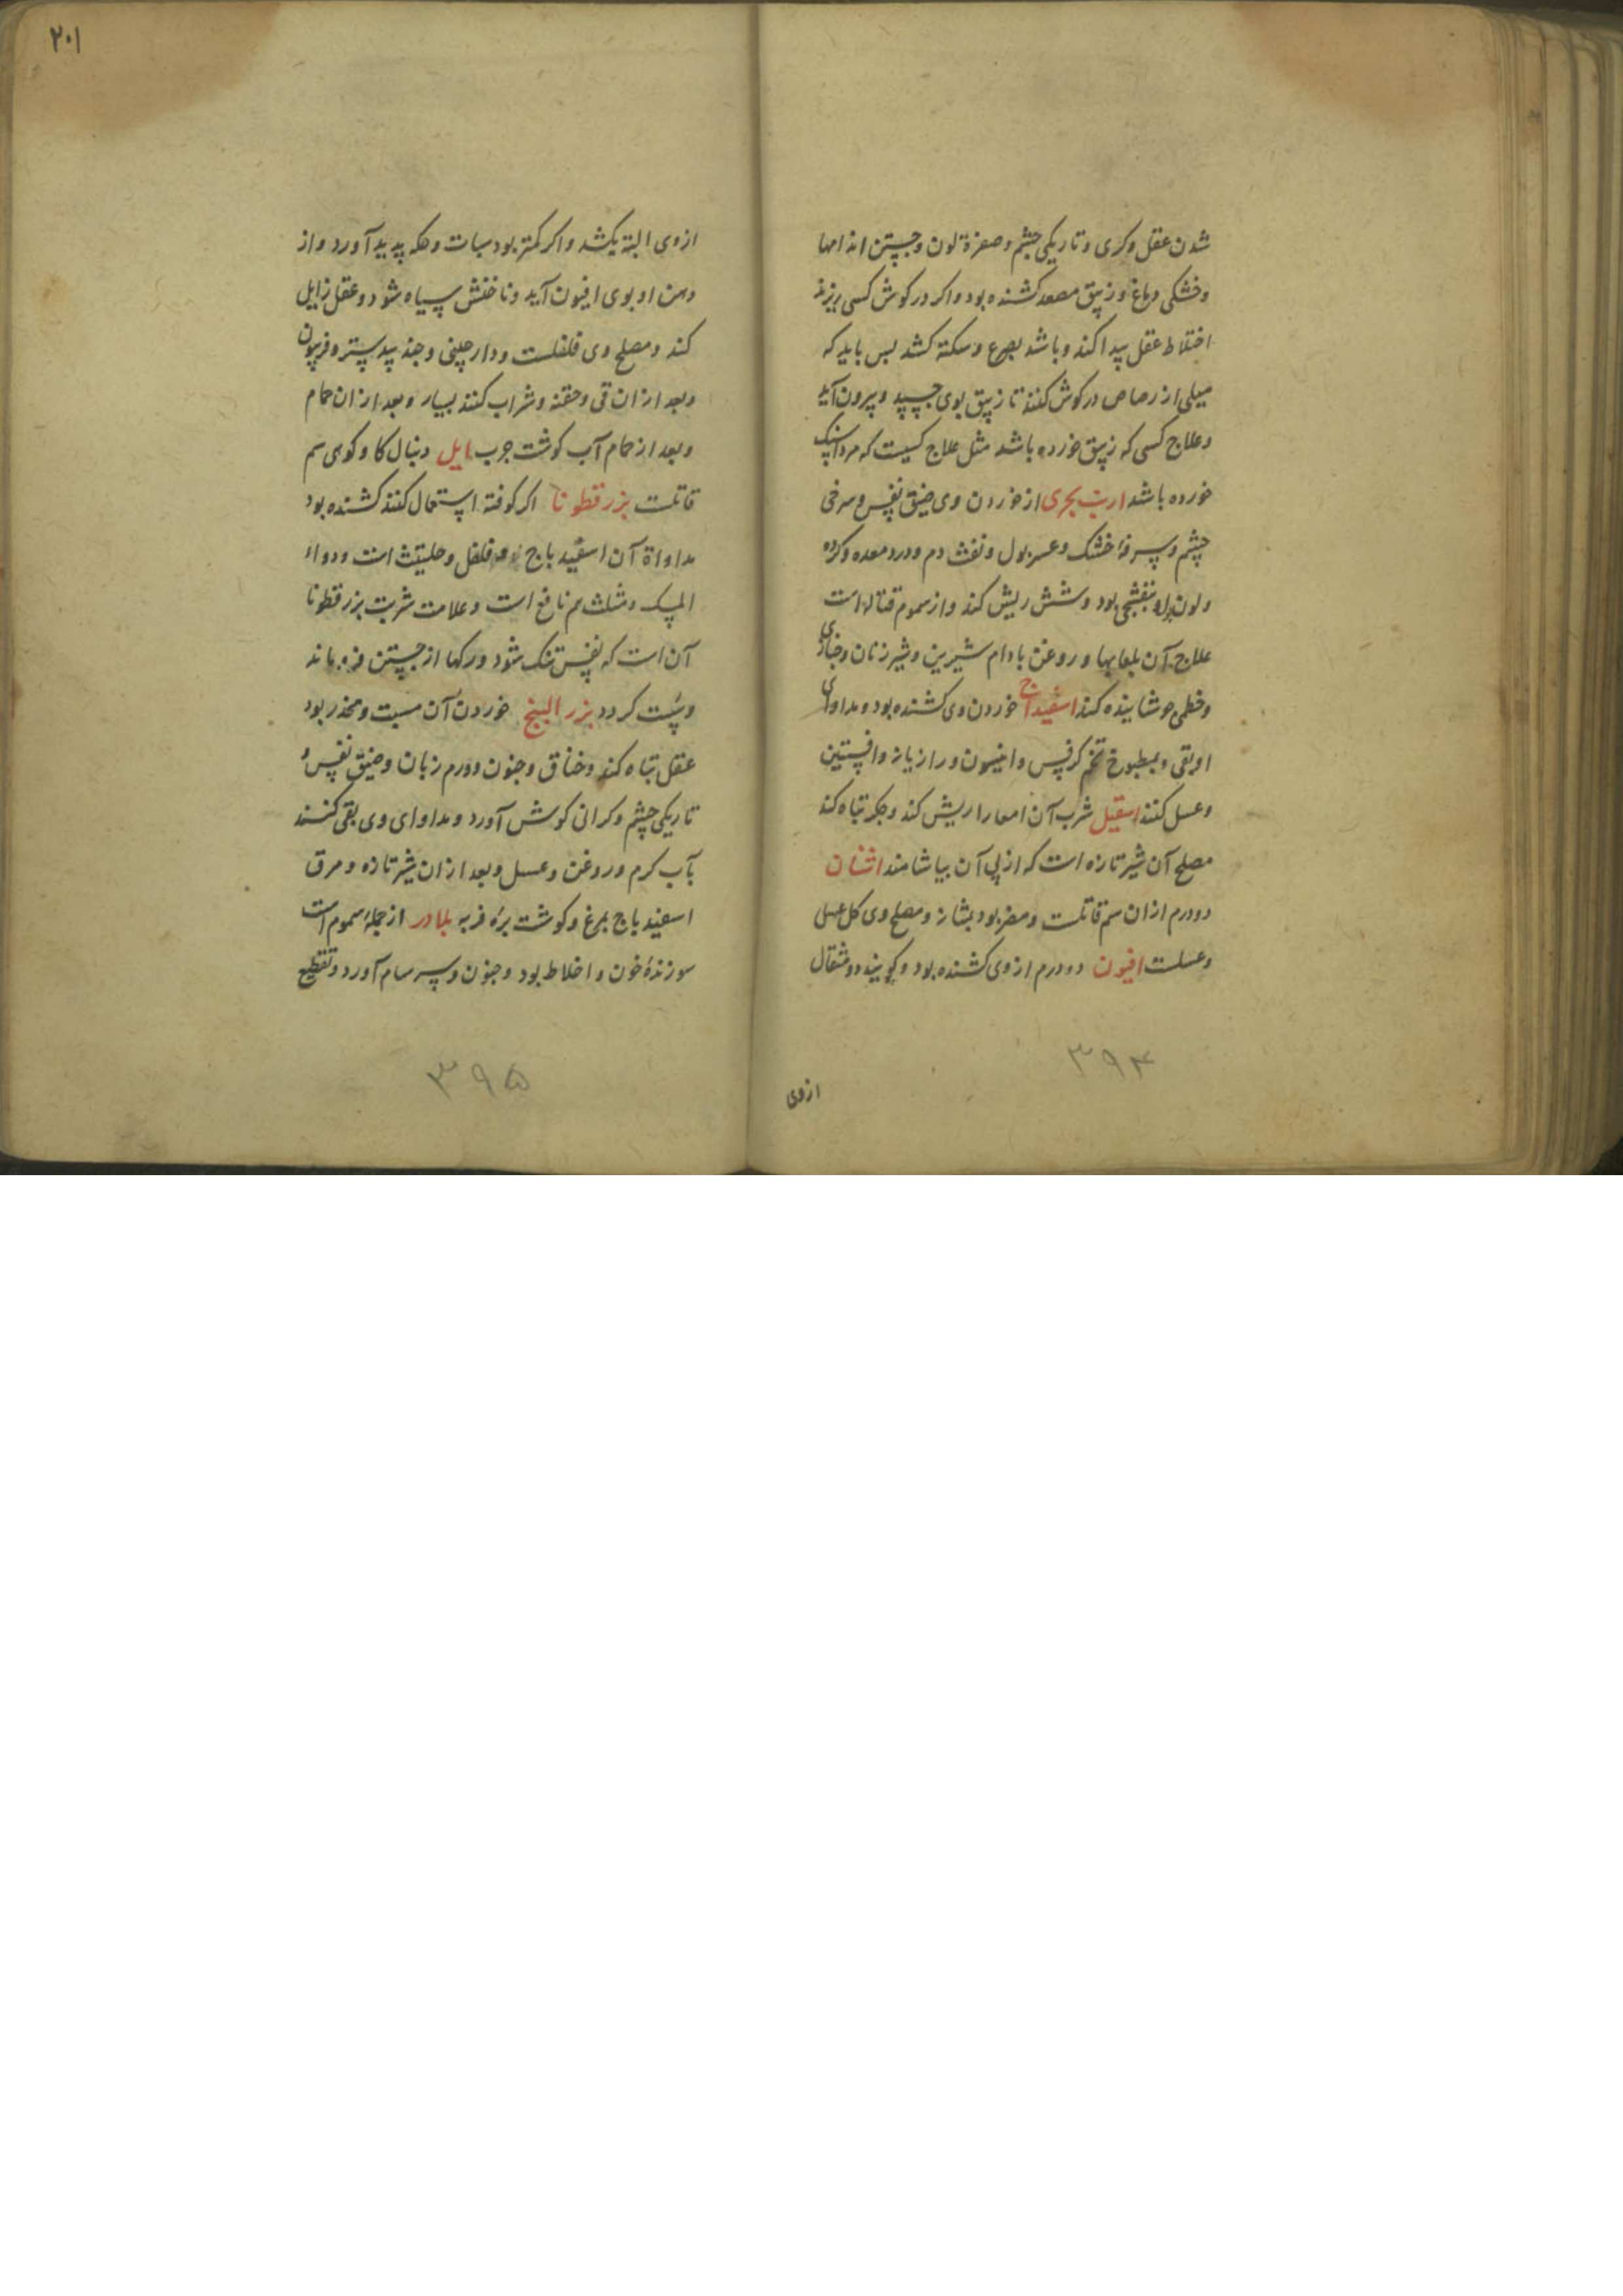 شدن عقل و کری و تاریکی چشم و صفرة لون و جستن اندامها
و خشکی دماغ و زیبق مصعد کشنده بود و اکر در کوش کسی ریزند
اختلاط عقل پیدا کند و باشد بصرع و سکته کشد پس باید که
میلی از رصاص در کوش کنند تا زیبق بوی چسپد و بیرون آید
و علاج کسی که زیبق خورده باشد مثل علاج کسیست که مرداسنک
خورده باشد ارنب بحری از خوردن وی ضیق نفس و سرخی
چشم و سرفهٔ خشک و عسر بول و نفث دم و درد معده و کرده
و لون بول بنفشجی بود و شش ریش کند و از سموم قتاله است
علاج آن بلعابها و روغن بادام شیرین و شیر زنان و خبازی
و خطمی جوشانیده کنند اسفیداج خوردن وی کشنده بود و مداوای
او بقی و بمطبوخ تخم کرفس و انیسون و رازیانه و افسنتین
و عسل کنند اسقیل شرب آن امعا را ریش کند و جکر تباه کند
مصلح آن شیر تازه است که از پی آن بیاشامند اشنان
دو درم ازان سم قاتلست و مضر بود بمثانه و مصلح وی کل
و عسلست افیون دو درم از وی کشنده بود و کویند دو مثقال
۳۹۴
ازوی
۲۰۱
ازوی البته بکشد و اکر کمتر بود سبات و حکه پدید آورد و از
دهن او بوی افیون آید و ناخنش سیاه شود و عقل زایل
کند و مصلح وی فلفلست و دارچینی و جند بیدستر و فربیون
و بعد ازان قی و حقنه و شراب کنند بسیار و بعد ازان حمام
و بعد از حمام آب کوشت چرب ایل دنبال کاو کوهی سم
قاتلست بزر قطونا اکر کوفته استعمال کنند کشنده بود
مداواة آن اسفیدباج و فلفل و حلتیث است و دواء
المسک و مثلث هم نافع است و علامت شربت بزر قطونا
آن است که نفس تنک شود و رکها از جستن فرو ماند
و سست کردد بزر البنج خوردن آن مسبت و مخدر بود
عقل تباه کند و خناق و جنون و ورم زبان و ضیق نفس و
تاریکی چشم و کرانی کوش آورد و مداوای وی بقی کنند
بآب کرم و روغن و عسل و بعد ازان شیر تازه و مرق
اسفیدباج بمرغ و کوشت برهٔ فربه بلادر از جملهٔ سموم است
سوزندهٔ خون و اخلاط بود و جنون و سرسام آورد و تقطیع
۳۹۵